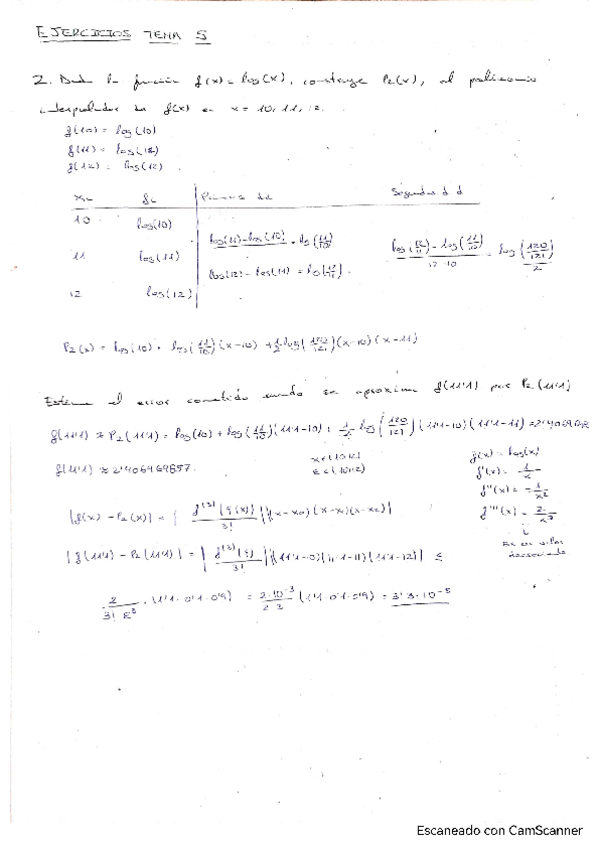 EJERCICIOS TEMA 5
2. Dada la función f(x) = log(x), construye P2(x), el polinomio
interpolador de f(x) en x = 10, 11, 12.
f(10) = log(10)
f(11) = log(12)
f(12) = log(12)
log(10)
10
log(11)-log(10) = log(11/10)
log(12/11) - log(11/10) / 12-10 = log(120/121) / 2
11 log(11)
log(12) - log(11) = log(12/11).
12 log(12)
P2(x) = log(10) + log(11/10)(x-10) + 1/2 log(120/121)(x-10)(x-11)
Estima el error cometido cuando se aproxima f(11'1) por P2(11'1)
f(11'1) ≈ P2(11'1) = log(10) + log(11/10)(11'1-10) + 1/2 log(120/121)(11'1-10)(11'1-11)
f(11'1) ≈ 2'406469857.
f(x) = log(x)
f'(x) = 1/x
f''(x) = -1/x²
|f(x) - P2(x)| = | f^(3)(ξ(x)) / 3! | |(x-x0)(x-x1)(x-x2)|
f'''(x) = 2/x³
|f(11'1) - P2(11'1)| = | f^(3)(ξ) / 3! | |(11'1-10)(11'1-11)(11'1-12)| ≤
(1'1·0'1·0'9) = 2·10^-3 / 2·3 (1'1·0'1·0'9) = 3'3·10^-5
Escaneado con CamScanner